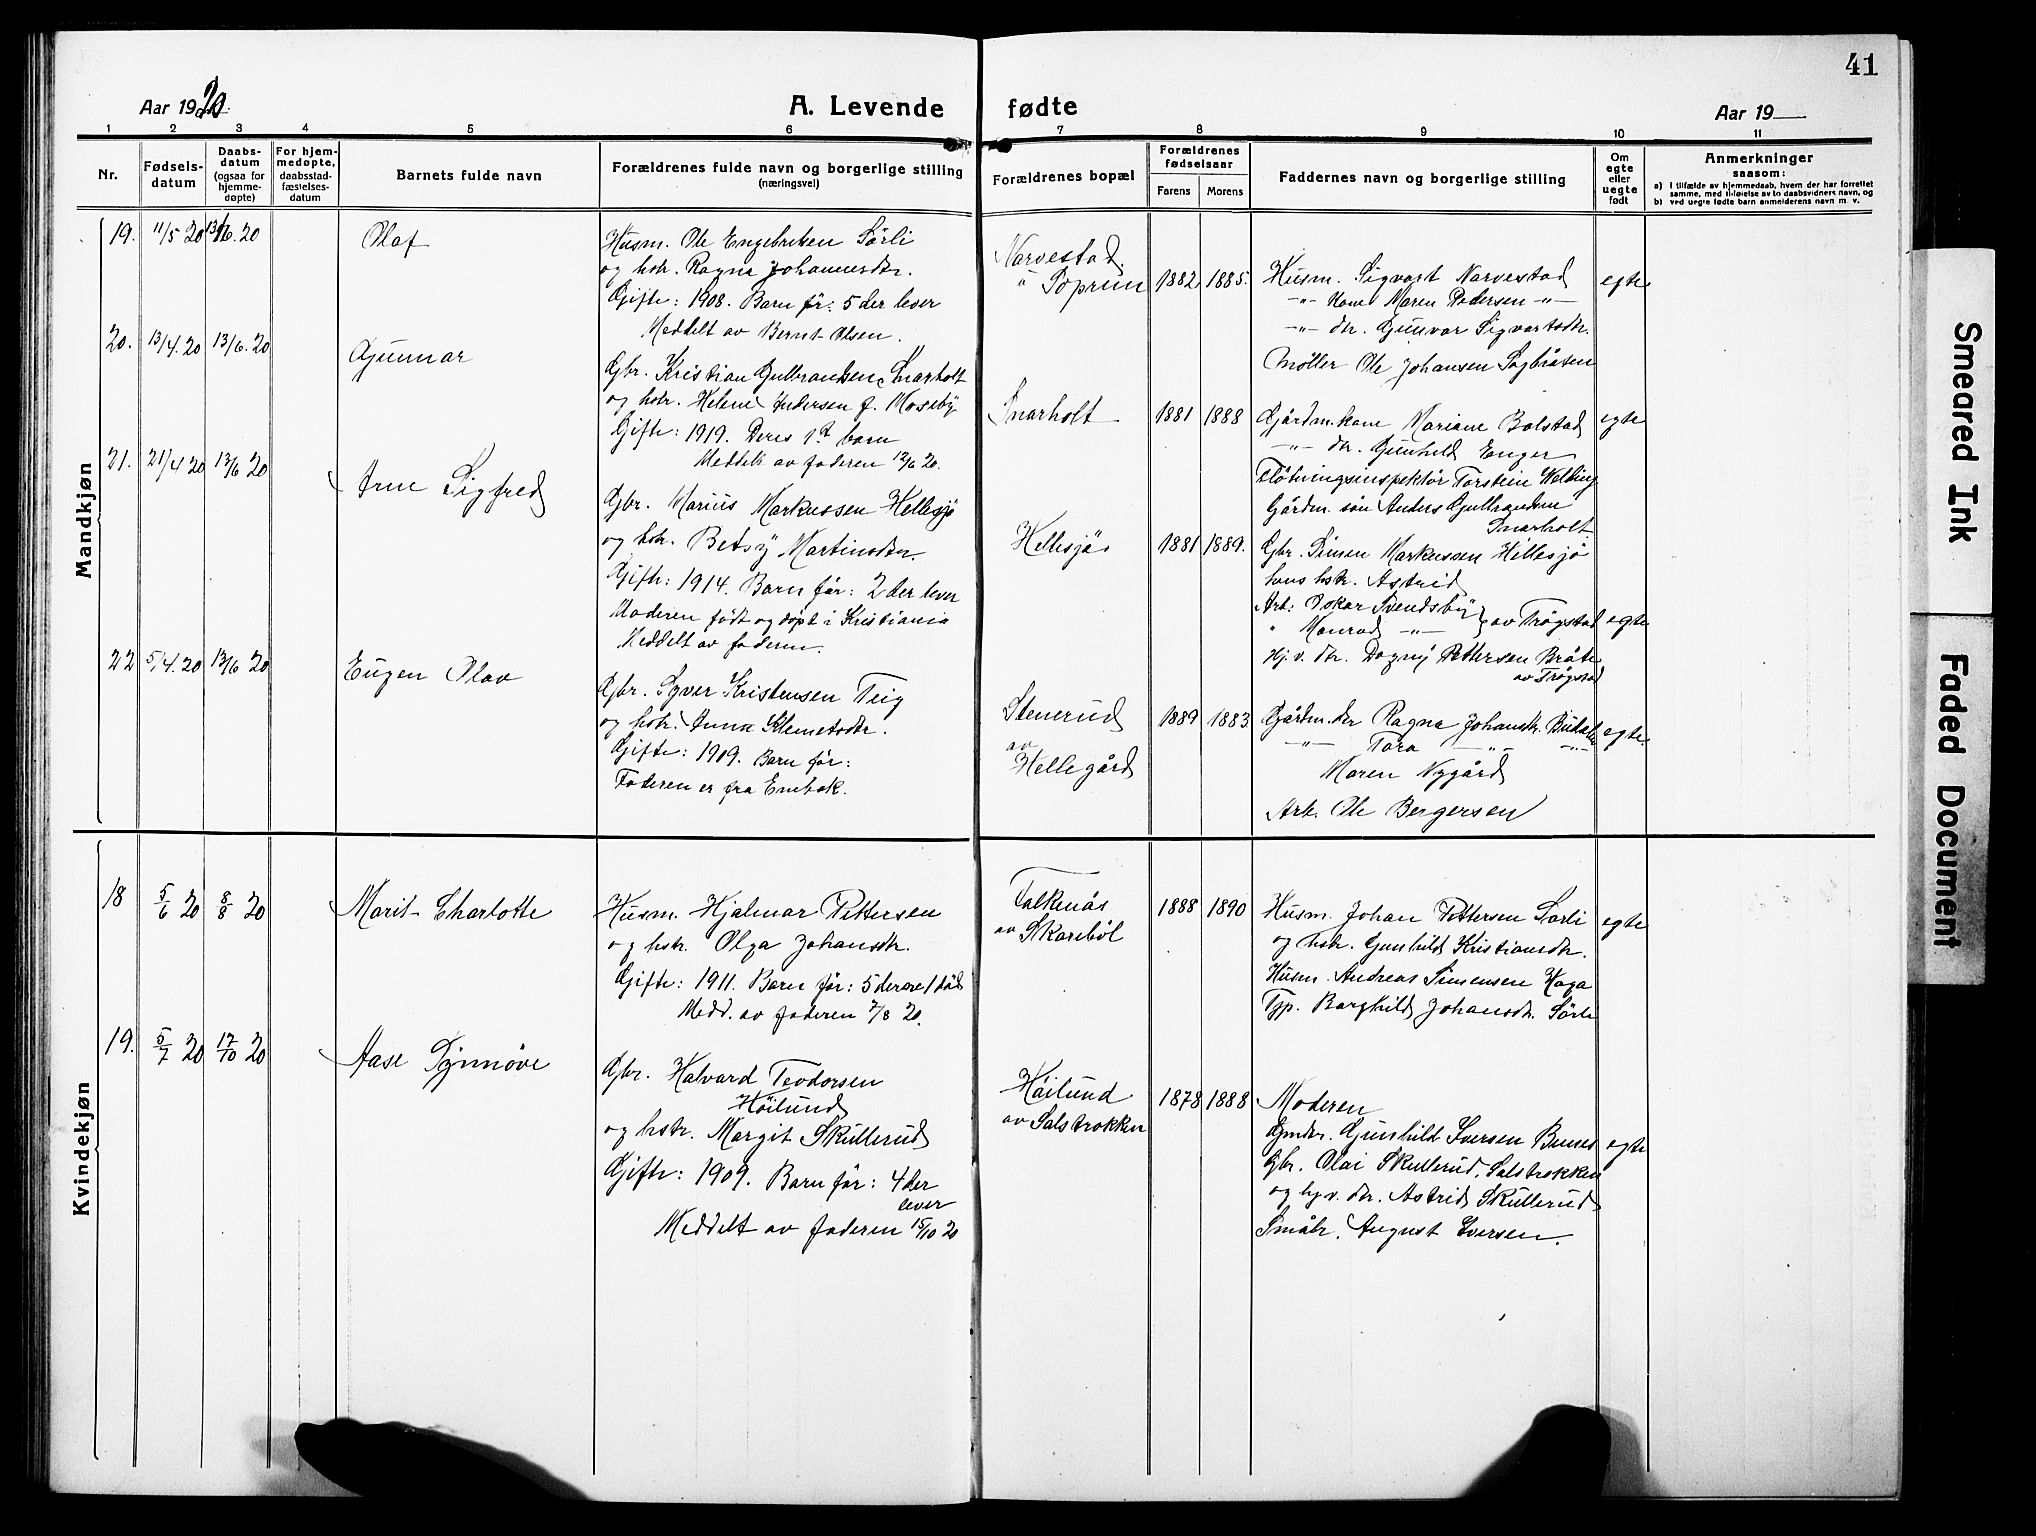 41
Aar 1920
A. Levende fødte
Aar 19
1 2 3 4 5 6 7 8 9 10 11
Nr.
Fødsels-
datum
Daabs-
datum
(ogsaa for
hjemme-
døpte)
For hjem-
medøpte,
daabsstad-
fæstelses-
datum
Barnets fulde navn
Forældrenes fulde navn og borgerlige stilling
(næringsvei)
Forældrenes bopæl
Forældrenes
fødselsaar
Farens Morens
Faddernes navn og borgerlige stilling
Om
egte
eller
uegte
født
Anmerkninger
saasom:
a) i tilfælde av hjemmedaab, hvem der har forrettet
samme, med tilføielse av to daabsvidners navn, og
b) ved uegte fødte barn anmelderens navn m. v.
Mandkjøn
19. 11/5 20 13/6. 20
Olaf
Husm. Ole Engebriksen Sörli
og hstr. Ragna Johannesdtr.
Gifte: 1908. Barn för: 5 der lever
Meddelt av Bernt Olsen.
Narvestad
" Soprim
1882 1885.
Husm. Sigvart Narvestad
-"- Kone Maren Pedersen -"-
-"- dtr. Gunvor Sigvartsdtr.
Möller Ole Johansen Sagbråten
egte
20. 13/4. 20 13/6. 20
Gunnar
Gbr. Kristian Gulbrandsen Snarholt
og hstr. Helene Andersen f. Moseby
Gifte: 1919. Deres 1st barn
Meddelt av faderen 12/6 20.
Snarholt
1881 1888
Gårdm. kone Mariane Bolstad
-"- dtr. Gunhild Enger
Flötningsinspektör Torstein Melbing
Gårdm. sön Anders Gulbrandsen
Snarholt
egte
21. 21/4 20 13/6 20
Arne Sigfred
Gbr. Marius Markussen Hellesjö
og hstr. Betsy Martinsdtr.
Gifte: 1914. Barn för: 2 der lever
Moderen födt og döpt i Kristiania
Meddelt av faderen.
Hellesjö
1881 1889.
Gbr. Simen Markussen Hellesjö
hans hstr. Astrid
Arb. Oskar Svendsby
" Monrad -"- av Trögstad
Hj. v. dtr. Dagny Pettersen Bråte
av Trögstad
egte
22 5/4. 20 13/6 20
Eugen Olav
Gbr. Syver Kristensen Teig
og hstr. Anna Klemetsdtr.
Gifte: 1909. Barn för:
Faderen er fra Enebak.
Stenerud
av
Hellegård
1889 1883
Gårdm. dtr Ragna Johansdtr. Budalen
-"- Tora -"- -"-
Maren Nygård
Arb. Ole Bergersen
egte.
Kvindekjøn
18 5/6 20 8/8 20
Marit Charlotte
Husm. Hjalmar Pettersen
og hstr. Olga Johansdtr.
Gifte: 1911. Barn för: 5 derav 1 död
Medd. av faderen 7/8 20.
Falkenås
av Skariböl
1888 1890
Husm. Johan Pettersen Sörli
og hstr. Gunhild Kristiansdtr.
Husm. Andreas Simensen Haga
Tjp. Borghild Johansdtr. Sörli
egte
19. 5/7 20 17/10 20
Aase Synnöve
Gbr. Halvard Teodorsen
Höilund
og hstr. Margit Skullerud
Gifte: 1909. Barn för: 4 der
lever
Meddelt av faderen 15/10 20
Höilund
av Salstrokken
1878 1888
Moderen
Gmdr. Gunhild Iversen Bunes
Gbr. Olai Skullerud, Salstrokken
og hj. v. dtr. Astrid Skullerud
Småbr. August Iversen.
egte
Smeared Ink
Faded Document